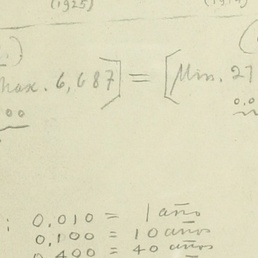 (1925)
Max. 6,687] = [Min. 27
: 0,010 = 1 año
0,100 = 10 años
0,400 = 40 años